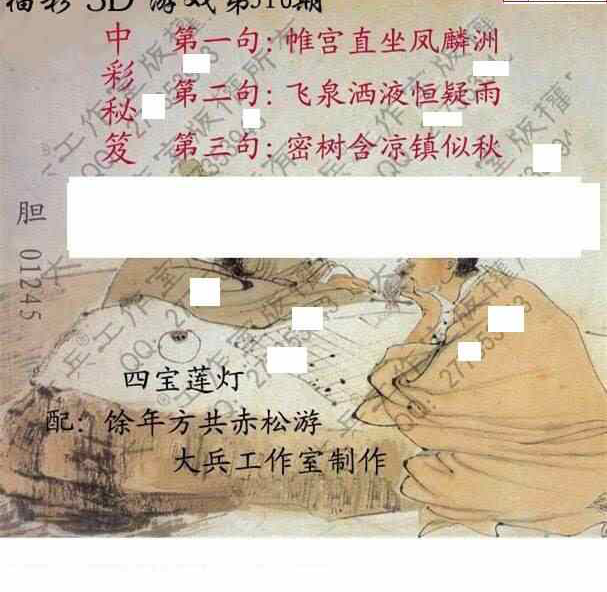 福彩3D游戏第310期
中彩秘笈
第一句：帷宫直坐凤麟洲
第二句：飞泉洒液恒疑雨
第三句：密树含凉镇似秋
胆 01245
四宝莲灯
配：馀年方共赤松游
大兵工作室制作